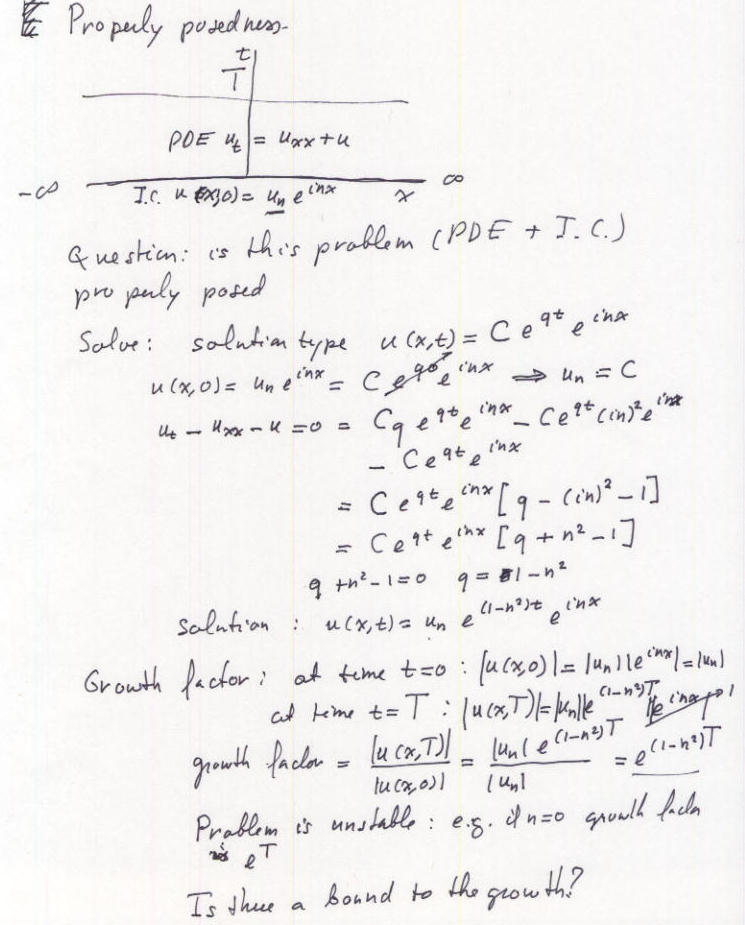 Properly posedness.
t
T
PDE u_t = u_xx + u
-∞ ∞
I.C. u(x,0) = u_n e^{inx} x
Question: is this problem (PDE + I.C.)
properly posed
Solve: solution type u(x,t) = C e^{qt} e^{inx}
u(x,0) = u_n e^{inx} = C e^{q0} e^{inx} ⇒ u_n = C
u_t - u_xx - u = 0 = Cq e^{qt} e^{inx} - C e^{qt} (in)² e^{inx}
- C e^{qt} e^{inx}
= C e^{qt} e^{inx} [q - (in)² - 1]
= C e^{qt} e^{inx} [q + n² - 1]
q + n² - 1 = 0 q = 1 - n²
solution : u(x,t) = u_n e^{(1-n²)t} e^{inx}
Growth factor: at time t=0 : |u(x,0)| = |u_n| |e^{inx}| = |u_n|
at time t = T : |u(x,T)| = |u_n| |e^{(1-n²)T}| |e^{inx}| 1
growth factor = |u(x,T)| / |u(x,0)| = |u_n| e^{(1-n²)T} / |u_n| = e^{(1-n²)T}
Problem is unstable : e.g. if n=0 growth factor
is e^T
Is there a bound to the growth?